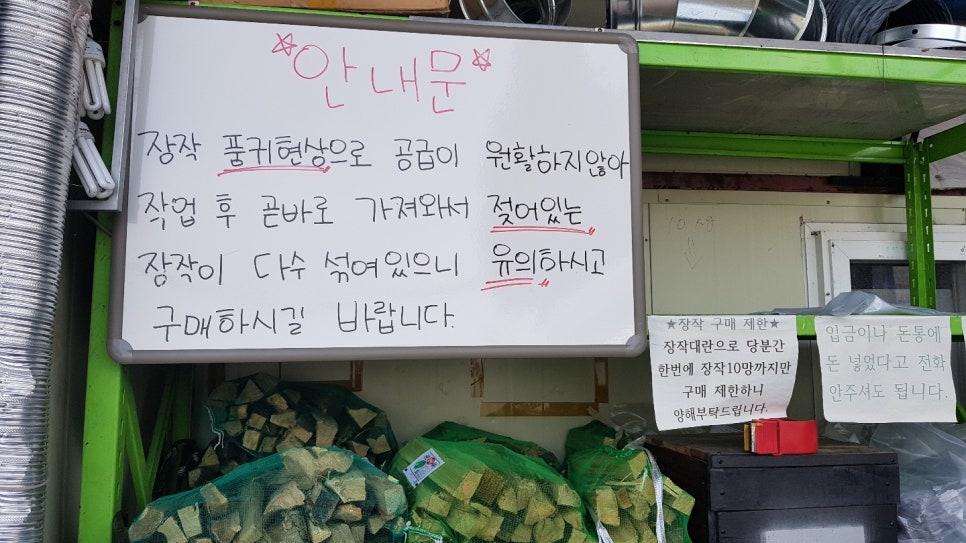 *안내문*
장작 품귀현상으로 공급이 원활하지않아
작업 후 곧바로 가져와서 젖어있는
장작이 다수 섞여있으니 유의하시고
구매하시길 바랍니다.
★장작 구매 제한★
장작대란으로 당분간
한번에 장작10망까지만
구매 제한하니
양해부탁드립니다.
입금이나 돈통에
돈 넣었다고 전화
안주셔도 됩니다.